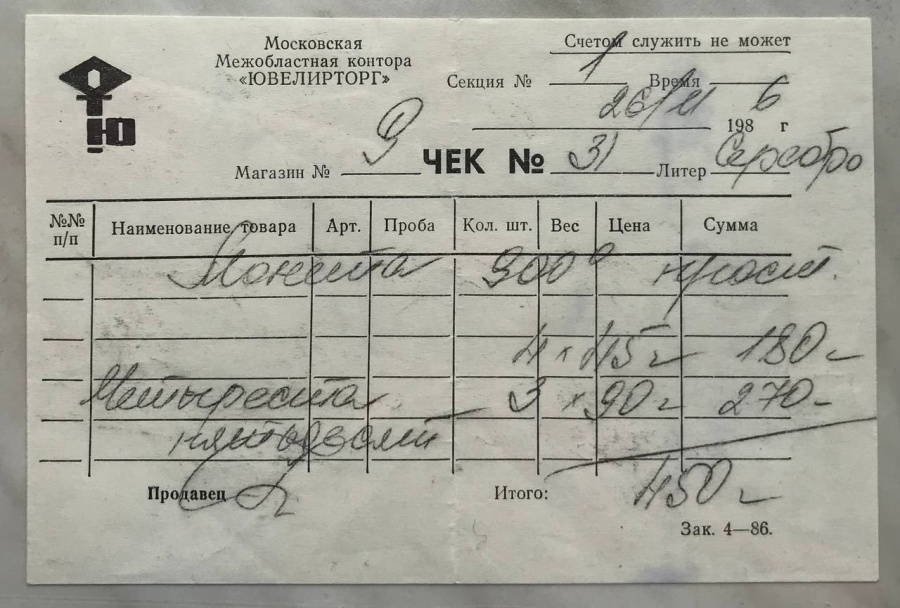 Московская
Межобластная контора
«ЮВЕЛИРТОРГ»
Счетом служить не может
Секция № 1 Время
26/ 198 6 г
Магазин № 9 ЧЕК № 31 Литер Серебро
№№ п/п Наименование товара Арт. Проба Кол. шт. Вес Цена Сумма
Монета 900°
4 x 45 180
Четыреста 3 x 90 270
пятьдесят
Продавец Итого: 450
Зак. 4—86.